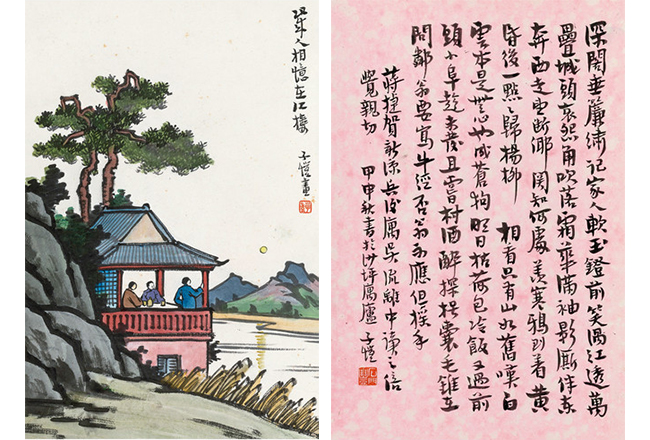 幾人相憶在江樓
子愷畫
深閣垂簾繡記家人軟語鐙前笑渦紅透萬
疊城頭哀怨角吹落霜華滿袖影廝伴東
奔西走望斷鄉關知何處羨寒鴉到着黃
昏後一點〻歸楊柳 相看只有山如舊嘆白
雲本是無心也成蒼狗明日枯荷包冷飯又過前
頭小阜趁未發且嘗村酒醉探枵囊毛錐在
問鄰翁要寫牛經否翁不應但搖手
蔣捷賀新涼兵後寓吳流離中讀之倍
覺親切 甲申秋書於沙坪寓廬 子愷